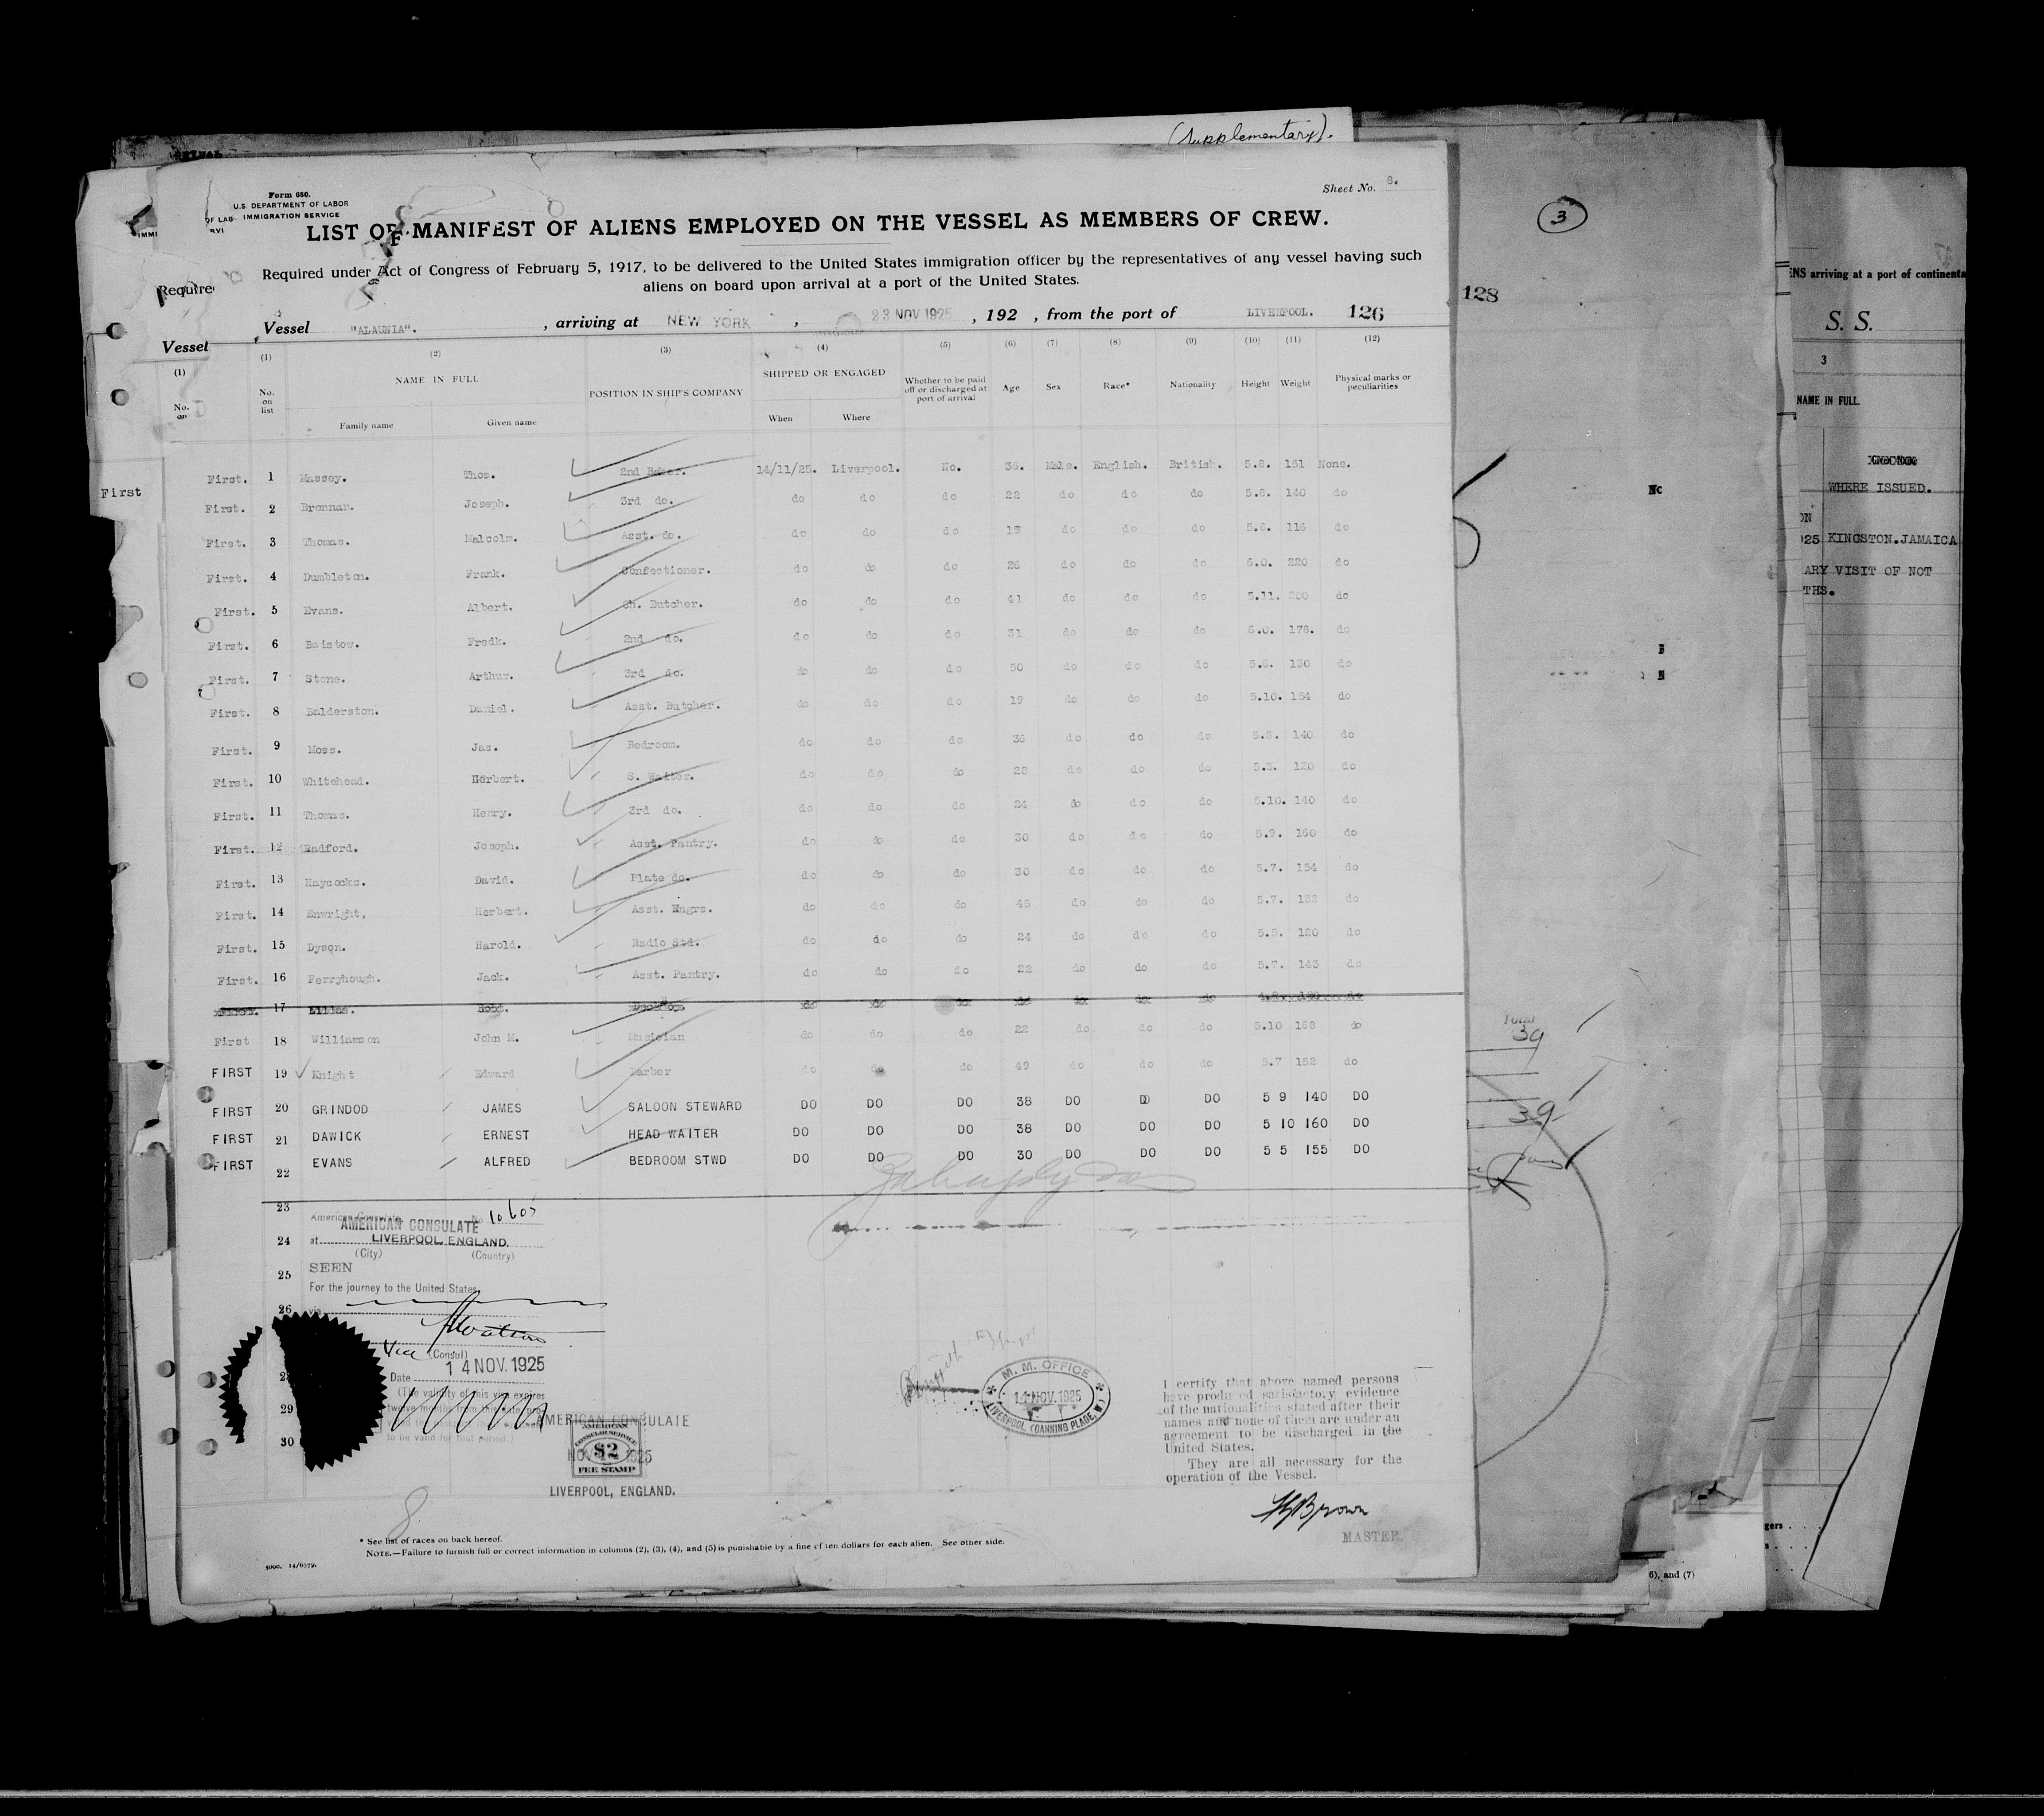 (Supplementary).
Form 680.
U.S. DEPARTMENT OF LABOR
IMMIGRATION SERVICE
Sheet No. 8.
LIST OR MANIFEST OF ALIENS EMPLOYED ON THE VESSEL AS MEMBERS OF CREW.
Required under Act of Congress of February 5, 1917, to be delivered to the United States immigration officer by the representatives of any vessel having such
aliens on board upon arrival at a port of the United States.
Vessel "ALAUNIA". , arriving at NEW YORK , 23 NOV 1925 , 192 , from the port of LIVERPOOL. 126
(1) (2) (3) (4) (5) (6) (7) (8) (9) (10) (11) (12)
No. on list NAME IN FULL POSITION IN SHIP'S COMPANY SHIPPED OR ENGAGED Whether to be paid off or discharged at port of arrival Age Sex Race* Nationality Height Weight Physical marks or peculiarities
Family name Given name When Where
First. 1 Massey. Thos. 2nd Baker. 14/11/25. Liverpool. No. 36. Male. English. British. 5.8. 151 None.
First. 2 Brennan. Joseph. 3rd do. do do do 22 do do do 5.8. 140 do
First. 3 Thomas. Malcolm. Asst. do. do do do 19 do do do 5.6. 116 do
First. 4 Dumbleton. Frank. Confectioner. do do do 26 do do do 6.0. 220 do
First. 5 Evans. Albert. Ch. Butcher. do do do 41 do do do 5.11. 200 do
First. 6 Baistow. Fredk. 2nd do. do do do 31 do do do 6.0. 178. do
First. 7 Stone. Arthur. 3rd do. do do do 50 do do do 5.6. 130 do
First. 8 Balderston. Daniel. Asst. Butcher. do do do 19 do do do 5.10. 154 do
First. 9 Moss. Jas. Bedroom. do do do 36 do do do 5.8. 140 do
First. 10 Whitehead. Herbert. S. Waiter. do do do 28 do do do 5.3. 120 do
First. 11 Thomas. Henry. 3rd do. do do do 24 do do do 5.10. 140 do
First. 12 Radford. Joseph. Asst. Pantry. do do do 30 do do do 5.9. 160 do
First. 13 Haycocks. David. Plate do. do do do 30 do do do 5.7. 154 do
First. 14 Enwright, Herbert. Asst. Engrs. do do do 45 do do do 5.7. 132 do
First. 15 Dyson. Harold. Radio Std. do do do 24 do do do 5.5. 120 do
First. 16 Ferryhough. Jack. Asst. Pantry. do do do 22 do do do 5.7. 143 do
17
First 18 Williamson John M. Musician do do do 22 do do do 5.10 168 do
FIRST 19 Knight Edward Barber do do do 49 do do do 5.7 152 do
FIRST 20 GRINDOD JAMES SALOON STEWARD DO DO DO 38 DO DO DO 5 9 140 DO
FIRST 21 DAWICK ERNEST HEAD WAITER DO DO DO 38 DO DO DO 5 10 160 DO
FIRST 22 EVANS ALFRED BEDROOM STWD DO DO DO 30 DO DO DO 5 5 155 DO
23
American Consulate No.
AMERICAN CONSULATE
24 at LIVERPOOL, ENGLAND.
(City) (Country)
25 SEEN
For the journey to the United States
26 via
Vice (Consul)
Date 14 NOV. 1925
(The validity of this visa expires
29
30
AMERICAN CONSULATE
AMERICAN
CONSULAR SERVICE
$2
FEE STAMP
LIVERPOOL, ENGLAND.
M. M. OFFICE
14 NOV. 1925
LIVERPOOL, (CANNING PLACE, W.)
I certify that above named persons
have produced satisfactory evidence
of the nationalities stated after their
names and none of them are under an
agreement to be discharged in the
United States.
They are all necessary for the
operation of the Vessel.
Brown
MASTER.
8
* See list of races on back hereof.
NOTE.—Failure to furnish full or correct information in columns (2), (3), (4), and (5) is punishable by a fine of ten dollars for each alien. See other side.
OF LAB
IMMI
Require
Vessel
(1)
No.
on
First
3
128
Total
39
39
ENS arriving at a port of continenta
S. S.
3
NAME IN FULL.
WHERE ISSUED.
925 KINGSTON.JAMAICA
ARY VISIT OF NOT
THS.
gers
6), and (7)